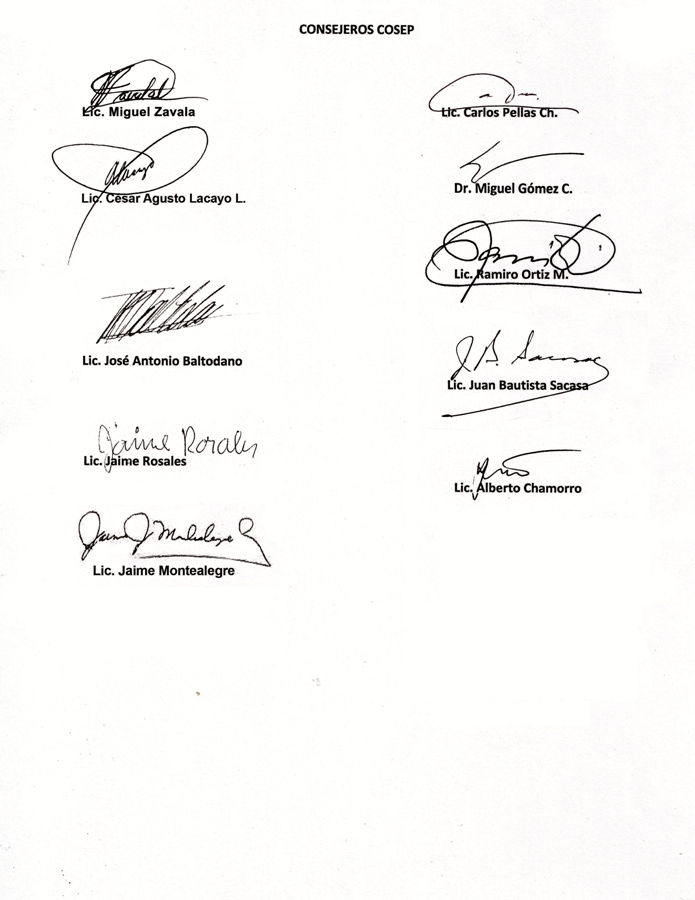 CONSEJEROS COSEP
Lic. Miguel Zavala
Lic. César Agusto Lacayo L.
Lic. José Antonio Baltodano
Jaime Rosales
Lic. Jaime Rosales
Lic. Jaime Montealegre
Lic. Carlos Pellas Ch.
Dr. Miguel Gómez C.
Lic. Ramiro Ortiz M.
J. B. Sacasa
Lic. Juan Bautista Sacasa
Lic. Alberto Chamorro